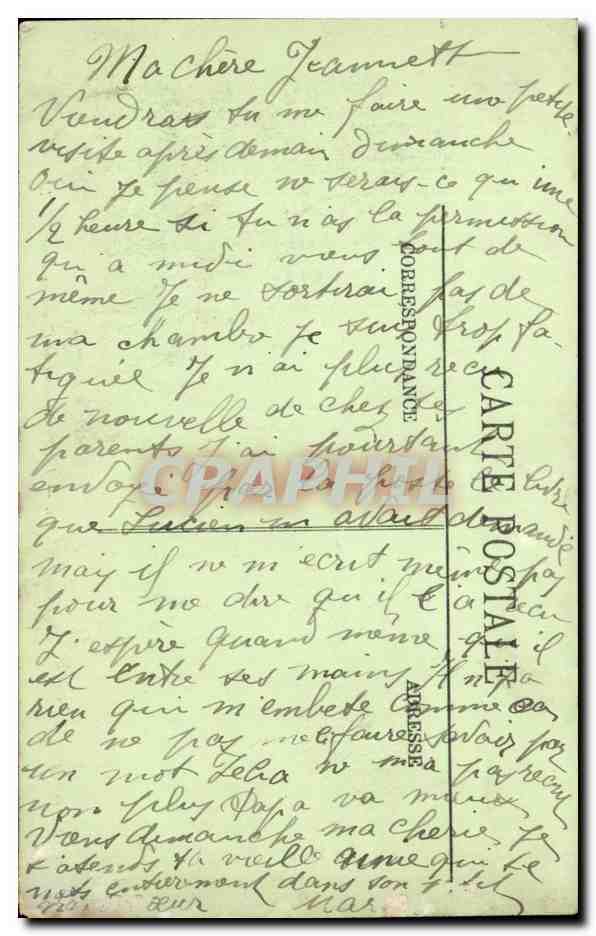 Ma chère Jeannett
Voudrais tu me faire une petite
visite après demain dimanche
Oui Je pense ne serais-ce qu une
1/2 heure si tu n'as la permission
qu a midi viens tout de
même Je ne sortirai pas de
ma chambre Je suis trop fa-
tiguée Je n'ai plus recu
de nouvelle de chez tes
parents J'ai pourtant
envoyé par la poste le livre
que Lucien m avait demandé
mais il ne m'ecrit même pas
pour me dire qu il l'a recu
J'espère quand même qu il
est entre ses mains Il n'y a
rien qui m'embete comme ca
de ne pas me faire savoir par
un mot ne m'a pas récrit
non plus Papa va mieux
Viens dimanche ma cherie Je
t'atends ta vieille amie qui te
mets entierement dans son p'tit
cœur Mar
CARTE POSTALE
CORRESPONDANCE
ADRESSE
CPAPHIL